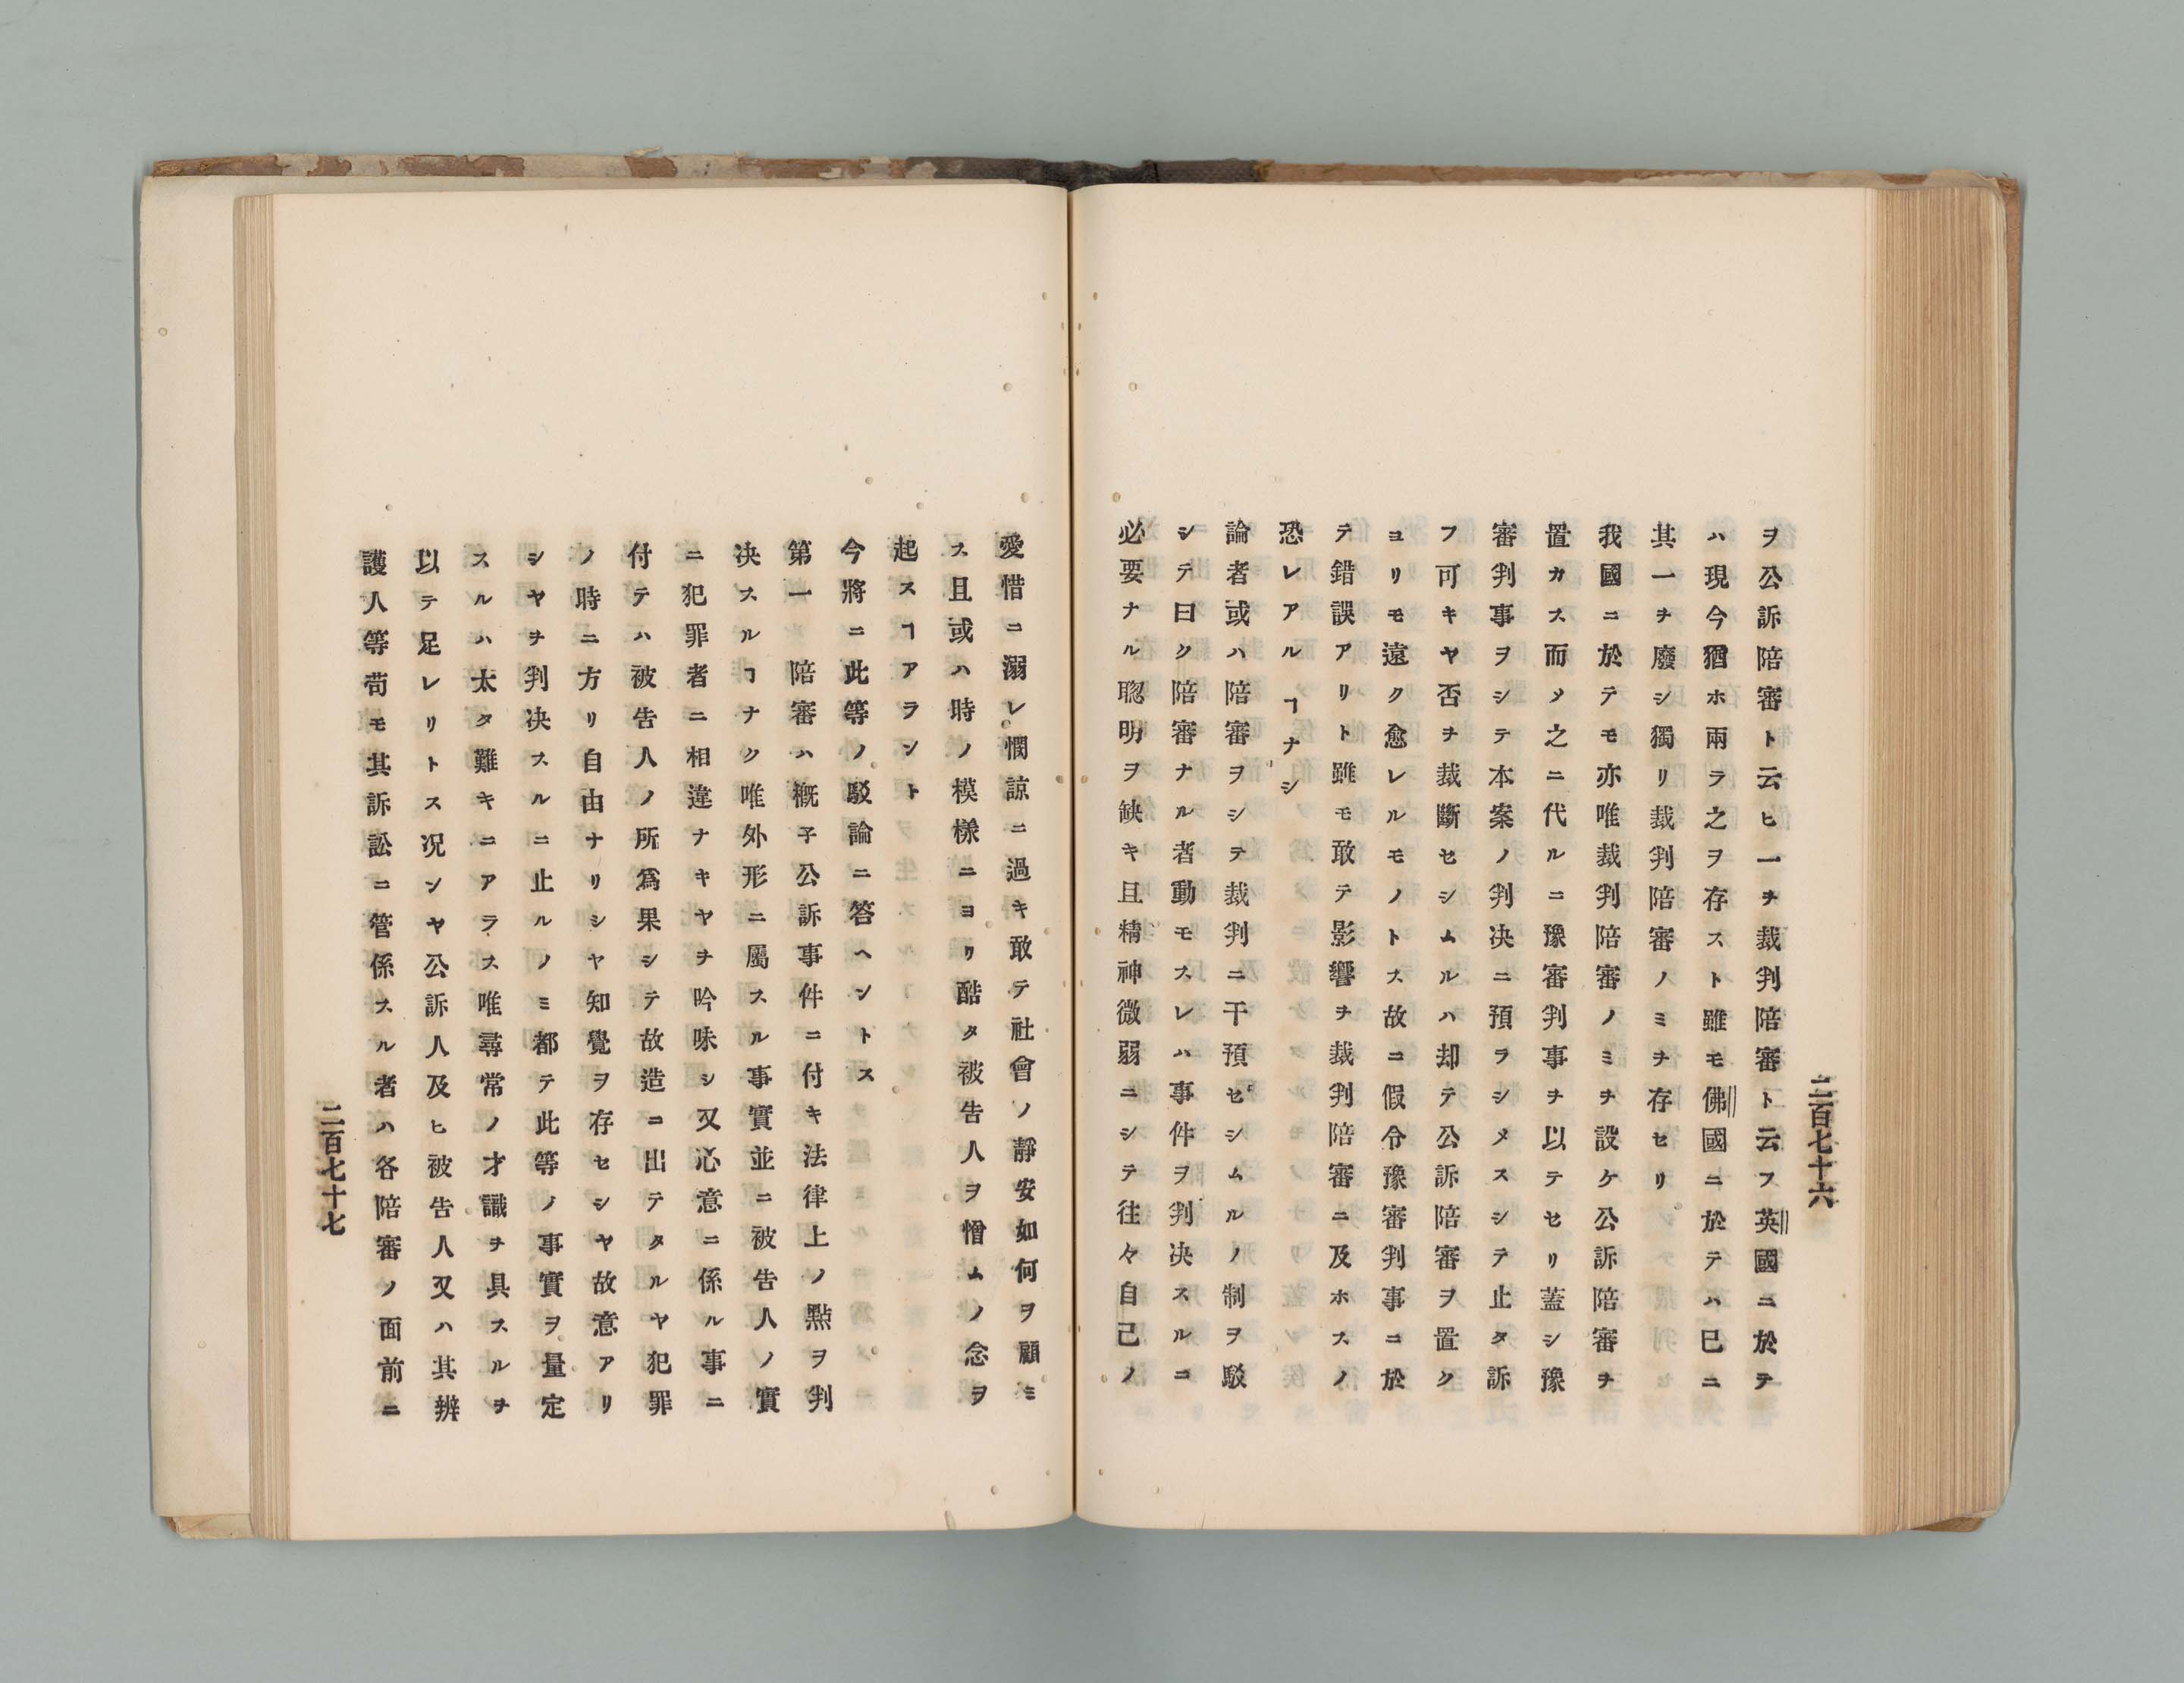 二百七十六
ヲ公訴陪審ト云ヒ一ヲ裁判陪審ト云フ英國ニ於テ
ハ現今猶ホ兩ラ之ヲ存スト雖モ佛國ニ於テハ已ニ
其一ヲ廢シ獨リ裁判陪審ノミヲ存セリ
我國ニ於テモ亦唯裁判陪審ノミヲ設ケ公訴陪審ヲ
置カス而メ之ニ代ルニ豫審判事ヲ以テセリ蓋シ豫
審判事ヲシテ本案ノ判决ニ預ラシメスシテ止タ訴
フ可キヤ否ヲ裁斷セシムルハ却テ公訴陪審ヲ置ク
ヨリモ遠ク愈レルモノトス故ニ假令豫審判事ニ於
テ錯誤アリト雖モ敢テ影響ヲ裁判陪審ニ及ホスノ
恐レアルヿナシ
論者或ハ陪審ヲシテ裁判ニ干預セシムルノ制ヲ駁
シテ曰ク陪審ナル者動モスレハ事件ヲ判决スルニ
必要ナル聰明ヲ缺キ且精神微弱ニシテ往々自己ノ
愛惜ニ溺レ憫諒ニ過キ敢テ社會ノ靜安如何ヲ顧ミ
ス且或ハ時ノ模樣ニヨリ酷タ被告人ヲ憎ムノ念ヲ
起スヿアラント
今將ニ此等ノ駁論ニ答ヘントス
第一 陪審ハ槪子公訴事件ニ付キ法律上ノ點ヲ判
决スルヿナク唯外形ニ屬スル事實並ニ被告人ノ實
ニ犯罪者ニ相違ナキヤヲ吟味シ又心意ニ係ル事ニ
付テハ被告人ノ所爲果シテ故造ニ出テタルヤ犯罪
ノ時ニ方リ自由ナリシヤ知覺ヲ存セシヤ故意アリ
シヤヲ判决スルニ止ルノミ都テ此等ノ事實ヲ量定
スルハ太タ難キニアラス唯尋常ノ才識ヲ具スルヲ
以テ足レリトス况ンヤ公訴人及ヒ被告人又ハ其辨
護人等苟モ其訴訟ニ管係スル者ハ各陪審ノ面前ニ
二百七十七